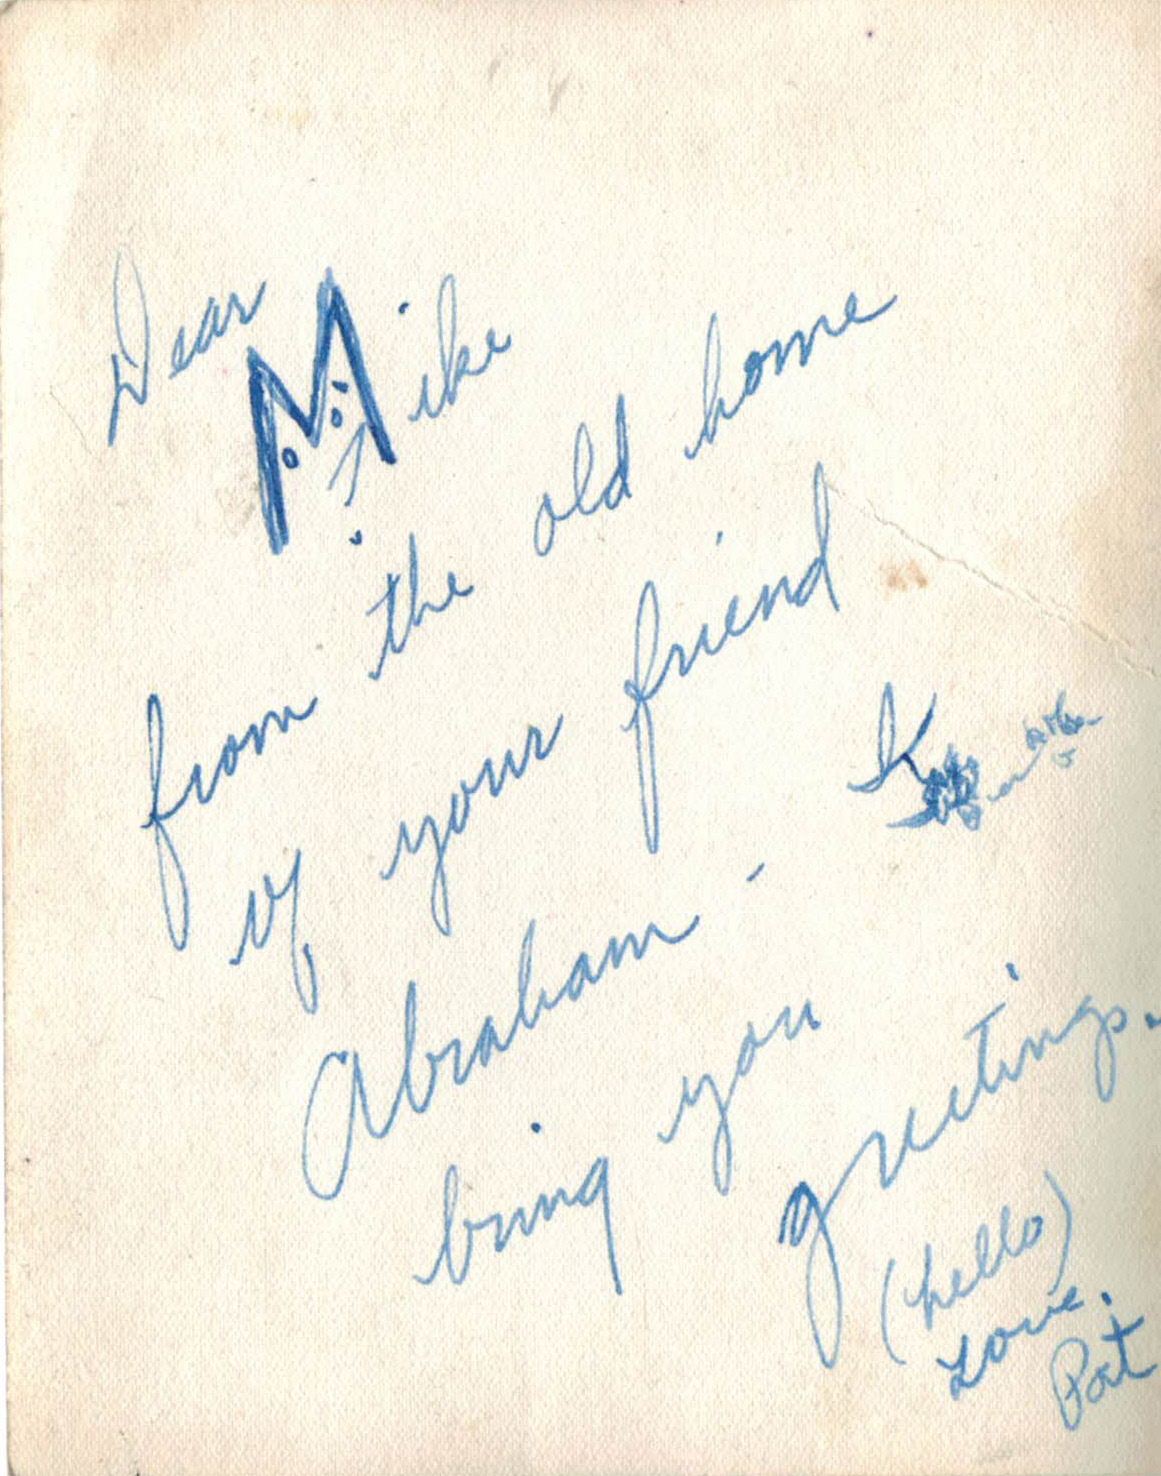 Dear Mike
from the old home
of your friend
Abraham -
bring you
greetings.
(hello)
Love.
Pat